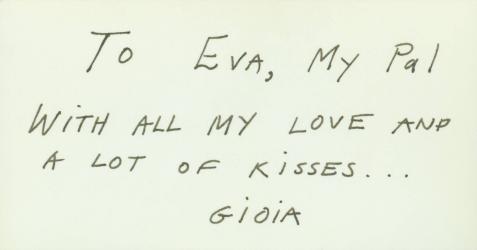 To Eva, My Pal
WITH ALL MY LOVE AND
A LOT OF KISSES...
GIOIA